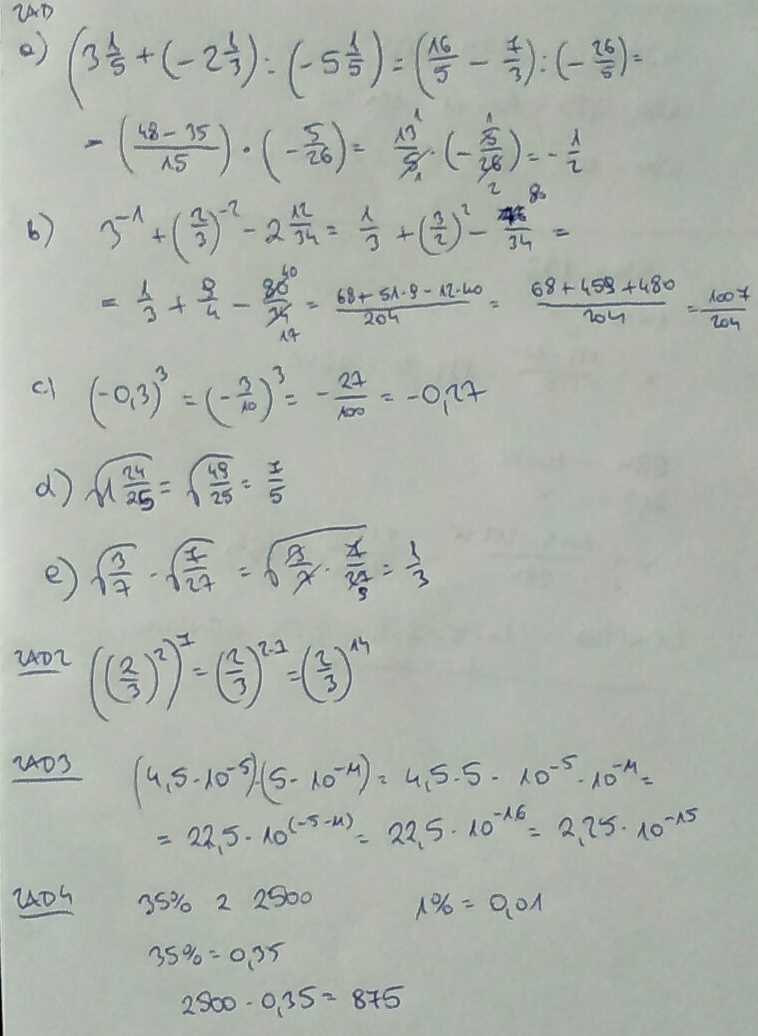 ZAD
a) (3 1/5 + (-2 1/3) : (-5 1/5) = (16/5 - 7/3) : (-26/5) =
= ((48-35)/15) · (-5/26) = 13/5 · (-5/26) = -1/2
b) 3^-1 + (2/3)^-2 - 2 12/34 = 1/3 + (3/2)^2 - 80/34 =
= 1/3 + 9/4 - 80/34 40/17 = (68+51·9-12·40)/204 = (68+459+480)/204 = 1007/204
c) (-0,3)^3 = (-3/10)^3 = -27/100 = -0,27
d) √(1 24/25) = √(49/25) = 7/5
e) √(3/7) · √(7/27) = √(3/7 · 7/27) = 1/3
ZAD2 ((2/3)^2)^7 = (2/3)^(2·7) = (2/3)^14
ZAD3 (4,5·10^-5)·(5·10^-11) = 4,5·5 · 10^-5 · 10^-11 =
= 22,5·10^(-5-11) = 22,5·10^-16 = 2,25·10^-15
ZAD4 35% z 2500 1% = 0,01
35% = 0,35
2500 · 0,35 = 875